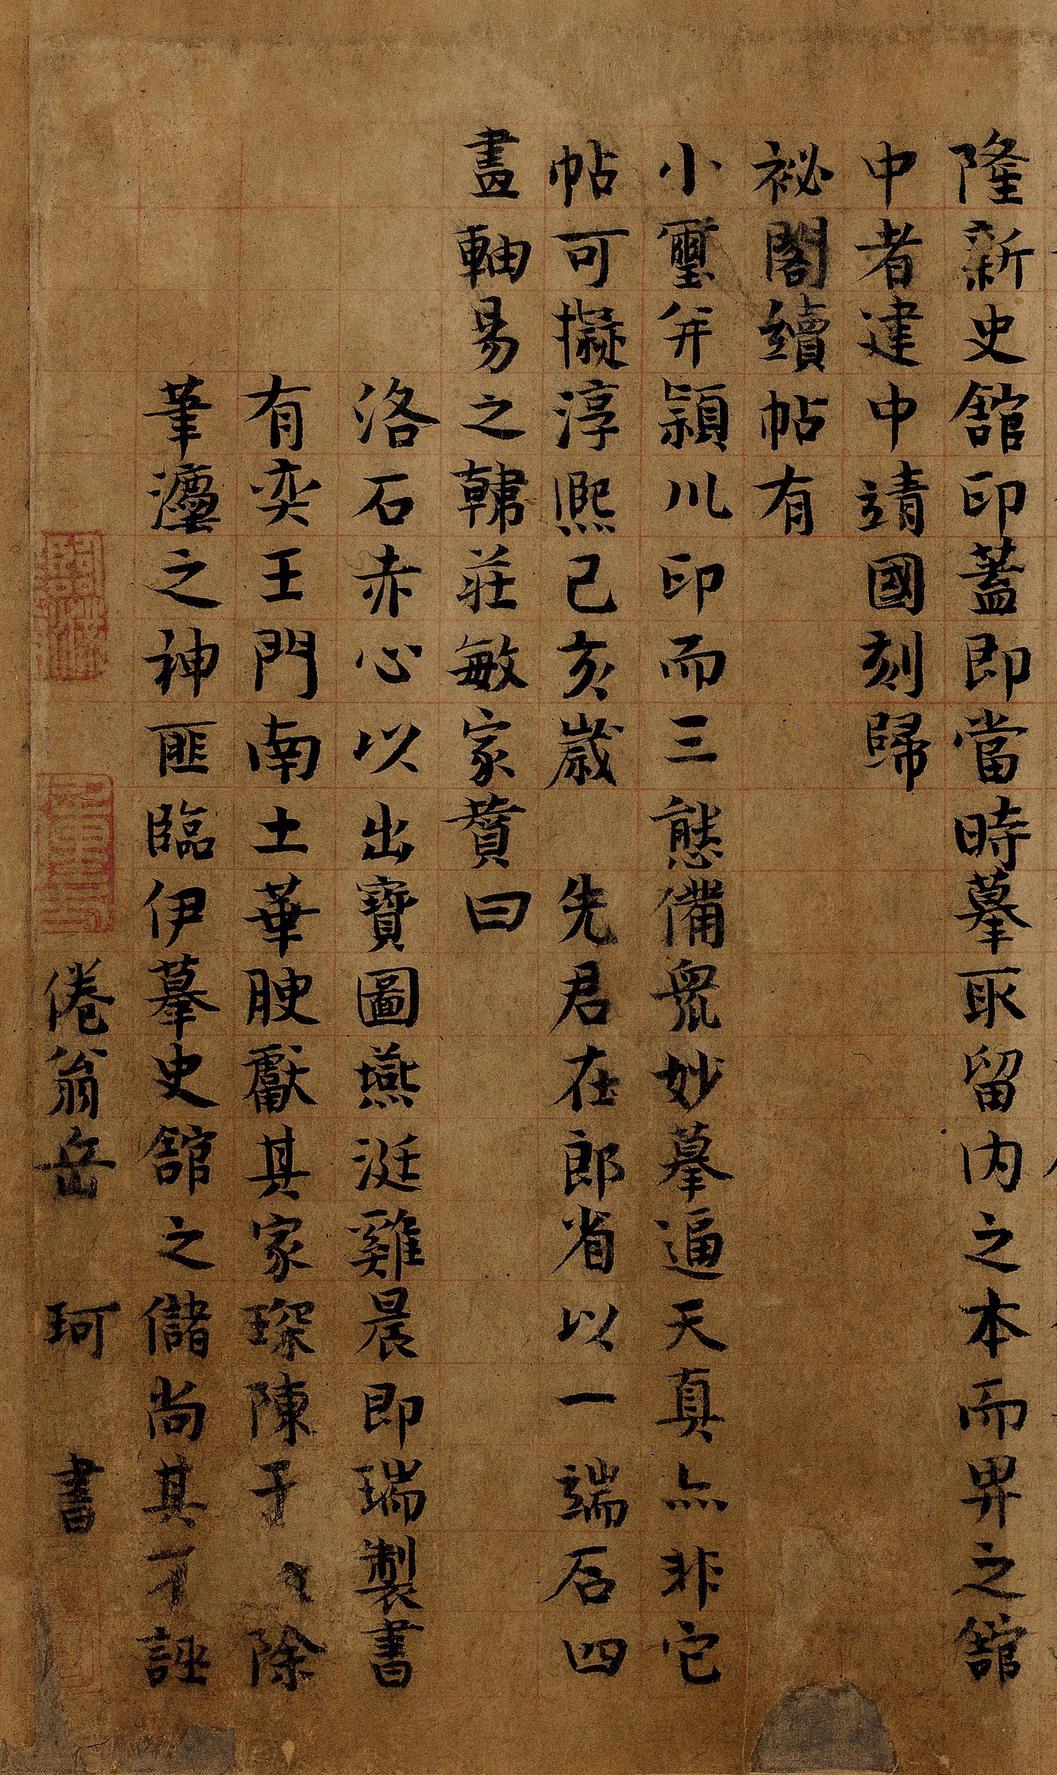 隆新史館印蓋即當時摹取留內之本而畀之館
中者建中靖國刻歸
祕閣續帖有
小璽并潁川印而三態備衆妙摹逼天真亦非它
帖可擬淳熙己亥歲 先君在郎省以一端石四
畫軸易之韓莊敏家贊曰
洛石赤心以出寶圖燕涎雞晨即瑞製書
有奕王門南土華腴獻其家琛陳于 除
筆瀍之神匪臨伊摹史館之儲尚其 誣
倦翁岳 珂 書